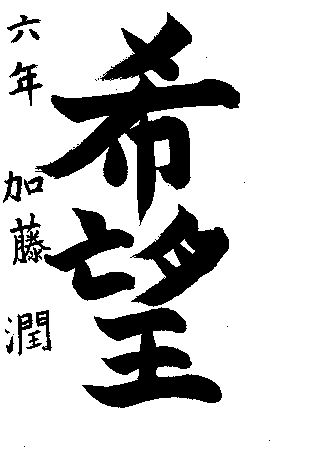 希望
六年 加藤潤